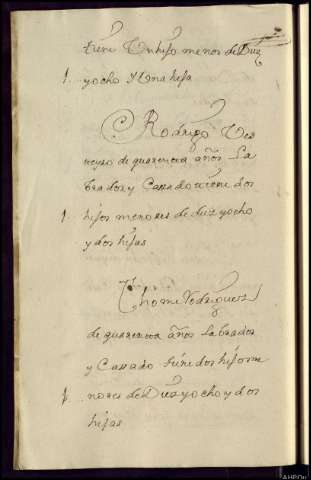 tiene Un hijo menor de Diez
1. yocho y Una hija
Rodrigo
de quarenta años La
brador y Cassado tiene dos
1. hijos menores de diez yocho
y dos hijas
Thome Rodriguez
de quarenta años labrador
y Cassado tiene dos hijos me
1. nores de Diez yocho y dos
hijas